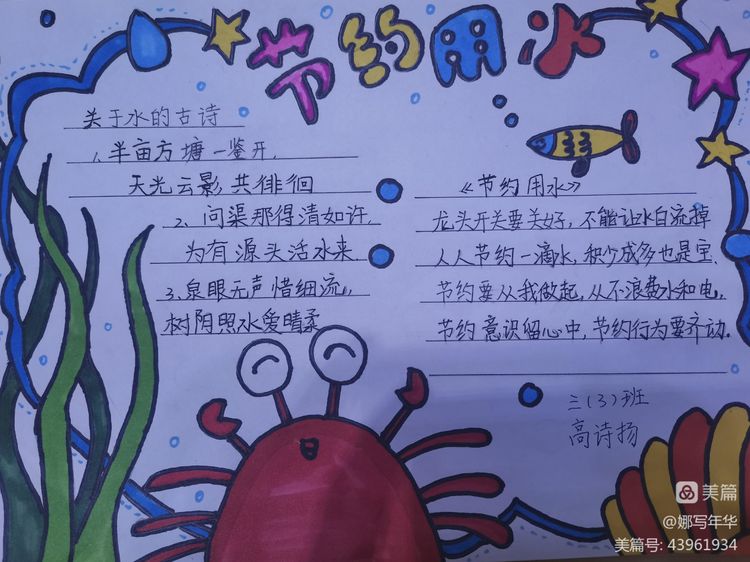 节约用水
关于水的古诗
1、半亩方塘一鉴开,
天光云影共徘徊
2、问渠那得清如许,
为有源头活水来
3、泉眼无声惜细流,
树阴照水爱晴柔
《节约用水》
龙头开关要关好,不能让水白流掉
人人节约一滴水,积少成多也是宝、
节约要从我做起,从不浪费水和电,
节约意识留心中,节约行为要齐动.
三(3)班
高诗扬
美篇
@娜写年华
美篇号: 43961934